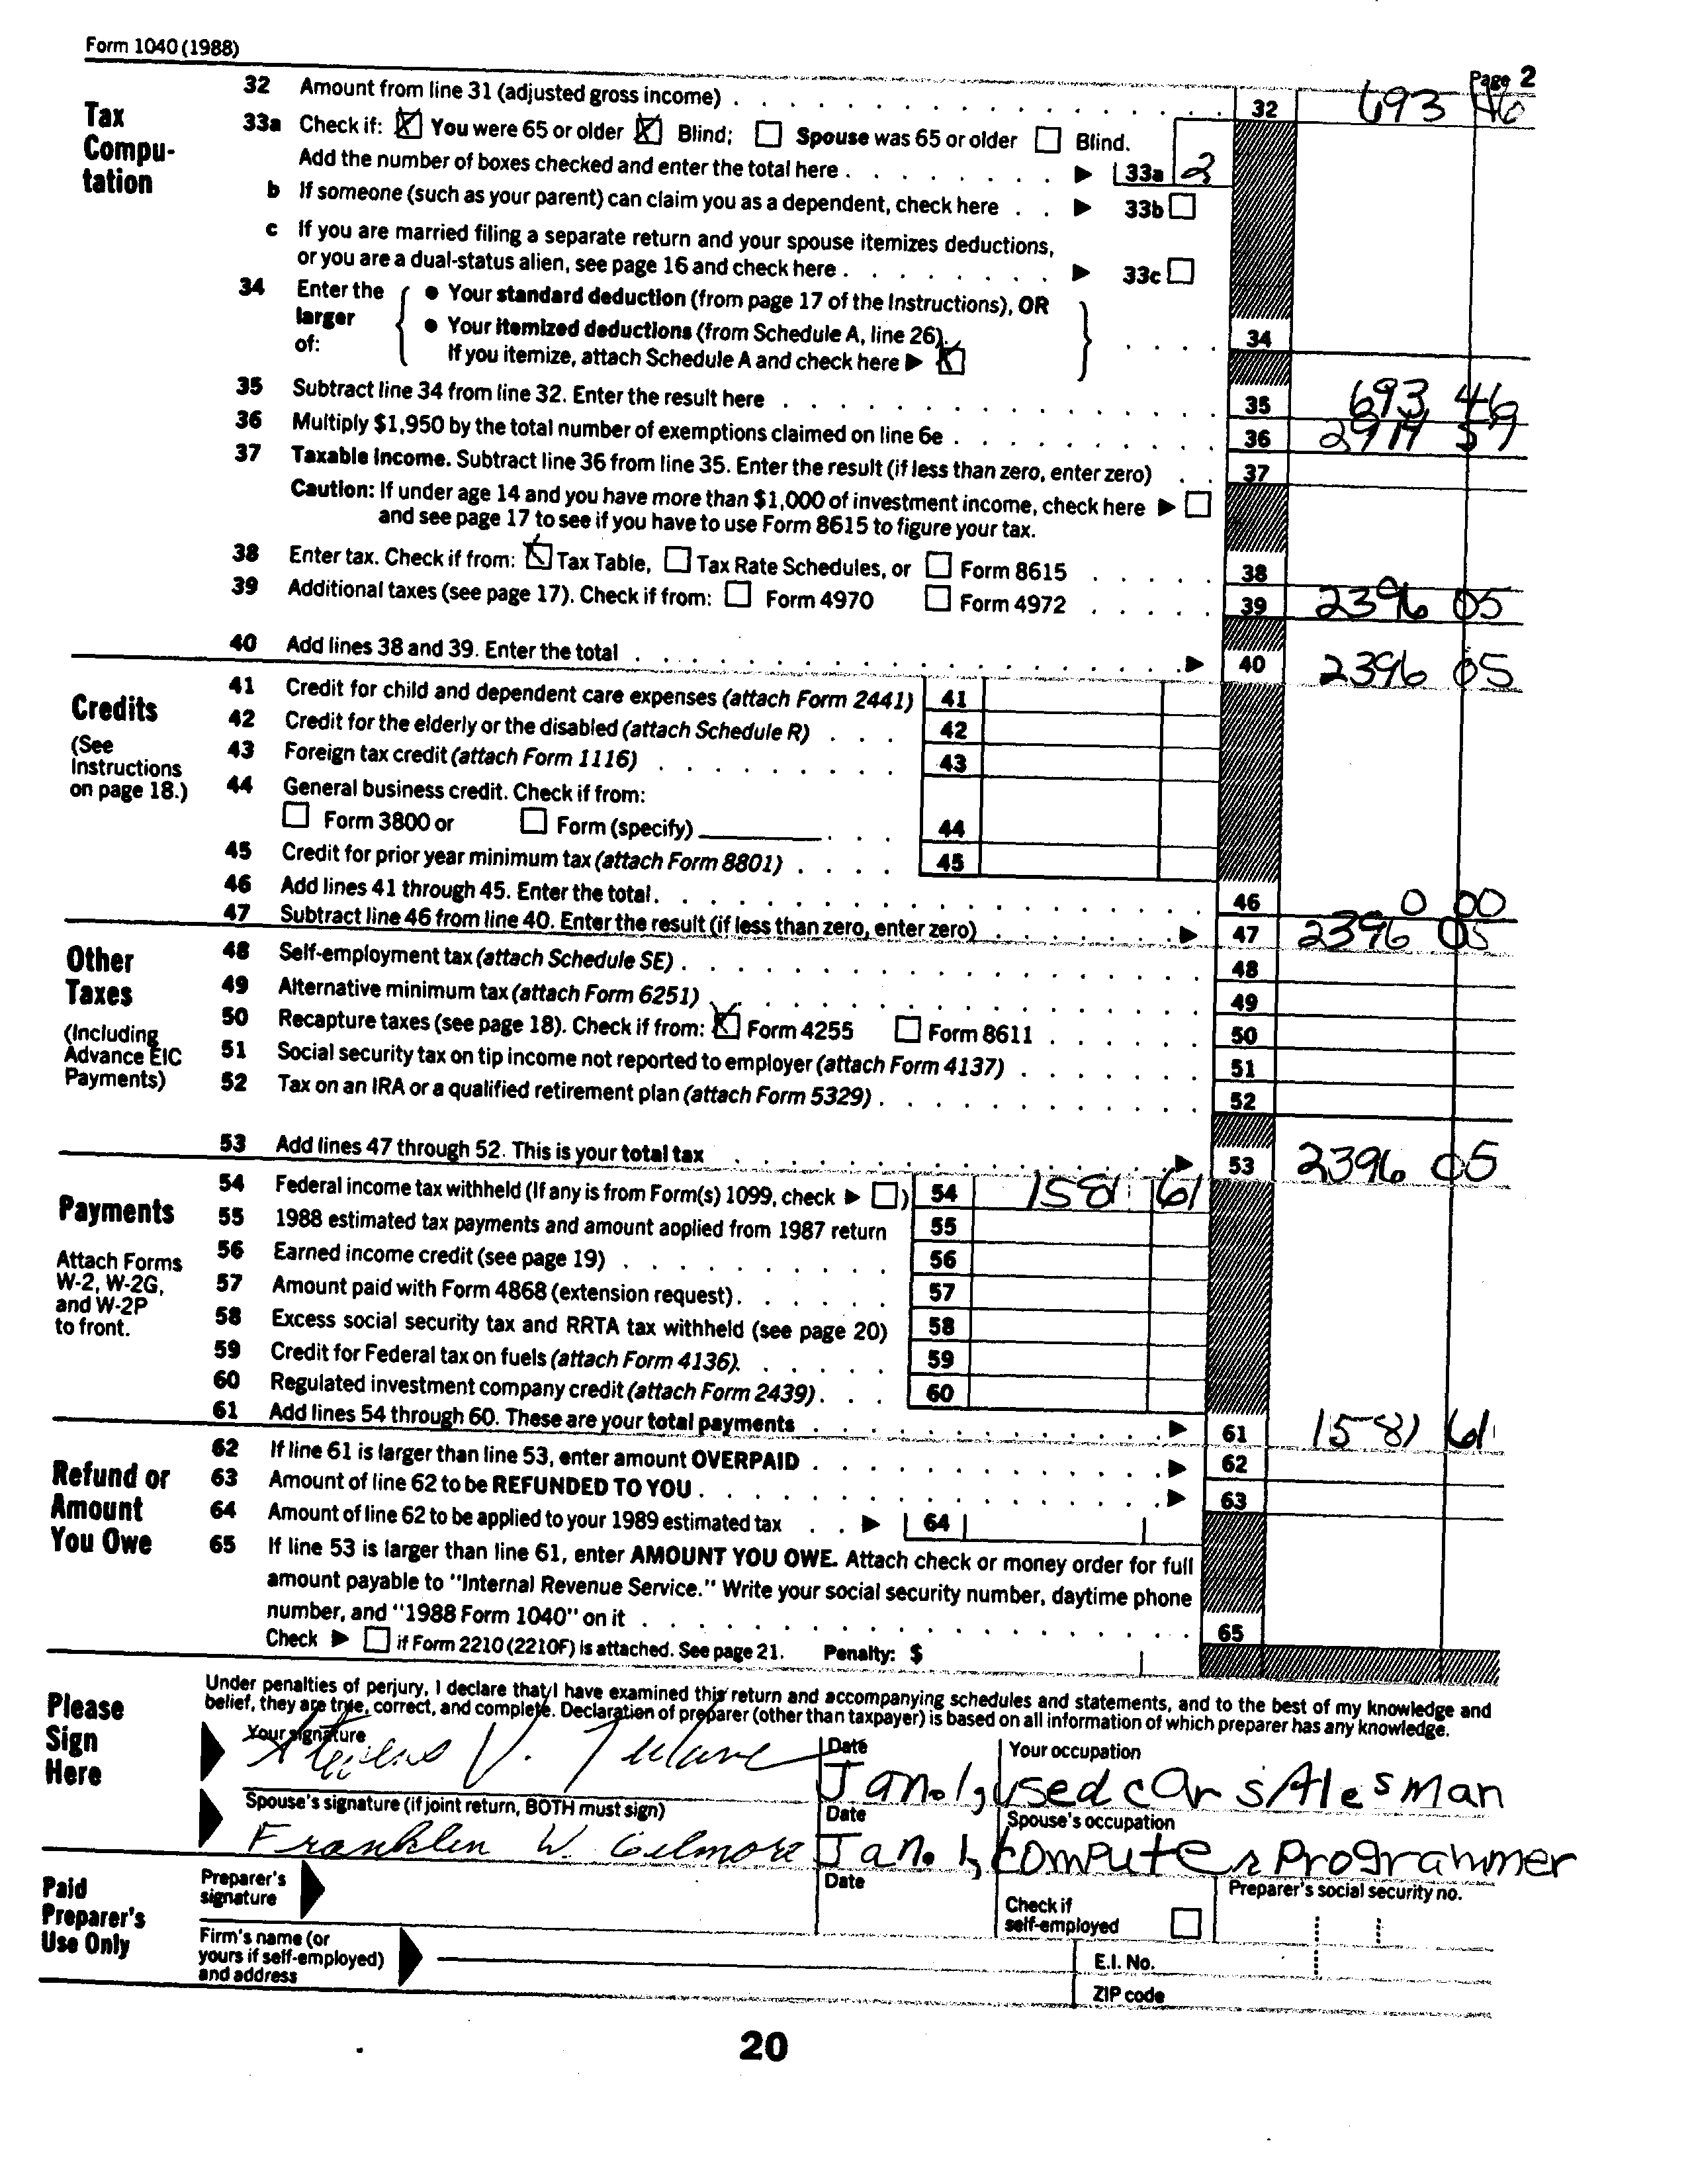 Form 1040 (1988)
Page 2
Tax Compu-
tation
32 Amount from line 31 (adjusted gross income) . . . 32 693 46
33a Check if: ☒ You were 65 or older ☒ Blind; ☐ Spouse was 65 or older ☐ Blind.
Add the number of boxes checked and enter the total here . . . ▶ 33a 2
b If someone (such as your parent) can claim you as a dependent, check here . . ▶ 33b ☐
c If you are married filing a separate return and your spouse itemizes deductions,
or you are a dual-status alien, see page 16 and check here . . . ▶ 33c ☐
34 Enter the larger of: { • Your standard deduction (from page 17 of the Instructions), OR
• Your itemized deductions (from Schedule A, line 26).
If you itemize, attach Schedule A and check here ▶ ☒ } . . . . 34
35 Subtract line 34 from line 32. Enter the result here . . . 35 693 46
36 Multiply $1,950 by the total number of exemptions claimed on line 6e . . . 36
37 Taxable income. Subtract line 36 from line 35. Enter the result (if less than zero, enter zero) . . 37
Caution: If under age 14 and you have more than $1,000 of investment income, check here ▶ ☐
and see page 17 to see if you have to use Form 8615 to figure your tax.
38 Enter tax. Check if from: ☒ Tax Table, ☐ Tax Rate Schedules, or ☐ Form 8615 . . . . 38
39 Additional taxes (see page 17). Check if from: ☐ Form 4970 ☐ Form 4972 . . . . 39 2396 05
40 Add lines 38 and 39. Enter the total . . . ▶ 40 2396 05
Credits
(See
Instructions
on page 18.)
41 Credit for child and dependent care expenses (attach Form 2441) 41
42 Credit for the elderly or the disabled (attach Schedule R) . . . 42
43 Foreign tax credit (attach Form 1116) . . . 43
44 General business credit. Check if from:
☐ Form 3800 or ☐ Form (specify) . . . 44
45 Credit for prior year minimum tax (attach Form 8801) . . . . 45
46 Add lines 41 through 45. Enter the total. . . . 46 0 00
47 Subtract line 46 from line 40. Enter the result (if less than zero, enter zero) . . . ▶ 47 2396 05
Other
Taxes
(Including
Advance EIC
Payments)
48 Self-employment tax (attach Schedule SE) . . . 48
49 Alternative minimum tax (attach Form 6251) . . . 49
50 Recapture taxes (see page 18). Check if from: ☒ Form 4255 ☐ Form 8611 . . . 50
51 Social security tax on tip income not reported to employer (attach Form 4137) . . . 51
52 Tax on an IRA or a qualified retirement plan (attach Form 5329) . . . 52
53 Add lines 47 through 52. This is your total tax . . . ▶ 53 2396 05
Payments
Attach Forms
W-2, W-2G,
and W-2P
to front.
54 Federal income tax withheld (If any is from Form(s) 1099, check ▶ ☐) 54 1581 61
55 1988 estimated tax payments and amount applied from 1987 return 55
56 Earned income credit (see page 19) . . . 56
57 Amount paid with Form 4868 (extension request) . . . 57
58 Excess social security tax and RRTA tax withheld (see page 20) 58
59 Credit for Federal tax on fuels (attach Form 4136). . . . 59
60 Regulated investment company credit (attach Form 2439) . . . 60
61 Add lines 54 through 60. These are your total payments . . . ▶ 61 1581 61
Refund or
Amount
You Owe
62 If line 61 is larger than line 53, enter amount OVERPAID . . . ▶ 62
63 Amount of line 62 to be REFUNDED TO YOU . . . ▶ 63
64 Amount of line 62 to be applied to your 1989 estimated tax . . ▶ 64
65 If line 53 is larger than line 61, enter AMOUNT YOU OWE. Attach check or money order for full
amount payable to "Internal Revenue Service." Write your social security number, daytime phone
number, and "1988 Form 1040" on it . . . 65
Check ▶ ☐ if Form 2210 (2210F) is attached. See page 21. Penalty: $
Please
Sign
Here
Under penalties of perjury, I declare that I have examined this return and accompanying schedules and statements, and to the best of my knowledge and
belief, they are true, correct, and complete. Declaration of preparer (other than taxpayer) is based on all information of which preparer has any knowledge.
Your signature Date Your occupation
V. Jan. 1, used car sAlesman
Spouse's signature (if joint return, BOTH must sign) Date Spouse's occupation
Franklin W. Gilmore Jan. 1, computer programmer
Paid
Preparer's
Use Only
Preparer's signature Date Check if self-employed ☐ Preparer's social security no.
Firm's name (or
yours if self-employed)
and address
E.I. No.
ZIP code
20